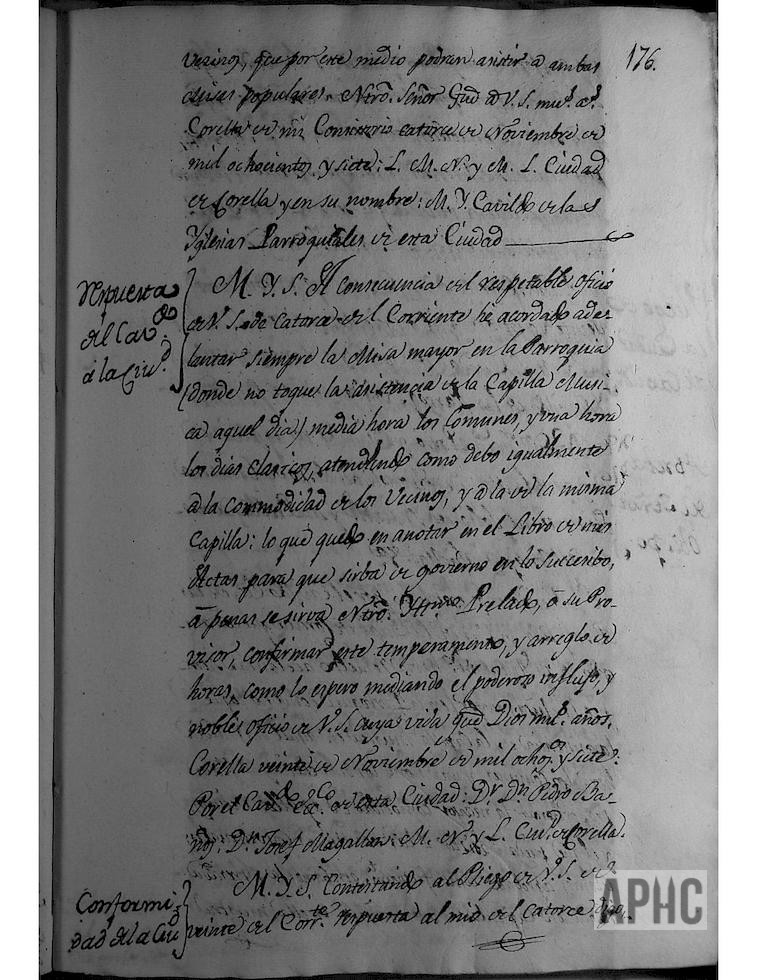 176.
vezinos, que por este medio podran asistir á ambas
Misas populares. Ntrõ. Señor Gue á V. S. mus. as.
Corella de mi Consistorio catorce de Noviembre de
mil ochocientos y siete: L. M. N. y M. L. Ciudad
de Corella y en su nombre: M. Y. Cavildo de las
Yglesias Parroquiales de esta Ciudad
Respuesta
del Cavdo
á la Ciud.
M. Y. S. A Consecuencia del respetable oficio
de V. S. de catorce del Corriente he acordado ade
lantar siempre la Misa mayor en la Parroquia
(donde no toque la asistencia de la Capilla Musi-
ca aquel dia) media hora los Comunes, y una hora
los dias clasicos, atendiendo como debo igualmente
a la commodidad de los Vecinos, y á la de la misma
Capilla: lo que quedo en anotar en el Libro de mis
Actas para que sirba de govierno en lo succesibo,
á penas se sirva Ntrõ. Yttmo. Prelado, ó su Pro-
visor, confirmar este temperamento, y arreglo de
horas, como lo espero mediando el poderoso influjo, y
noble oficio de V. S. cuya vida gue Dios ms. años.
Corella veinte de Noviembre de mil ochos. y siete:
Por el Cavdo Ecco. de esta Ciudad: Dr. Dn. Pedro Ba-
ños: Dn. Josef Magallon: M. N. y L. Ciud. de Corella.
Conformi
dad de la Ciud
M. Y. S. Contestando al Pliego de V. S. de
veinte del Corrte. respuesta al mio del catorce digo,
APHC